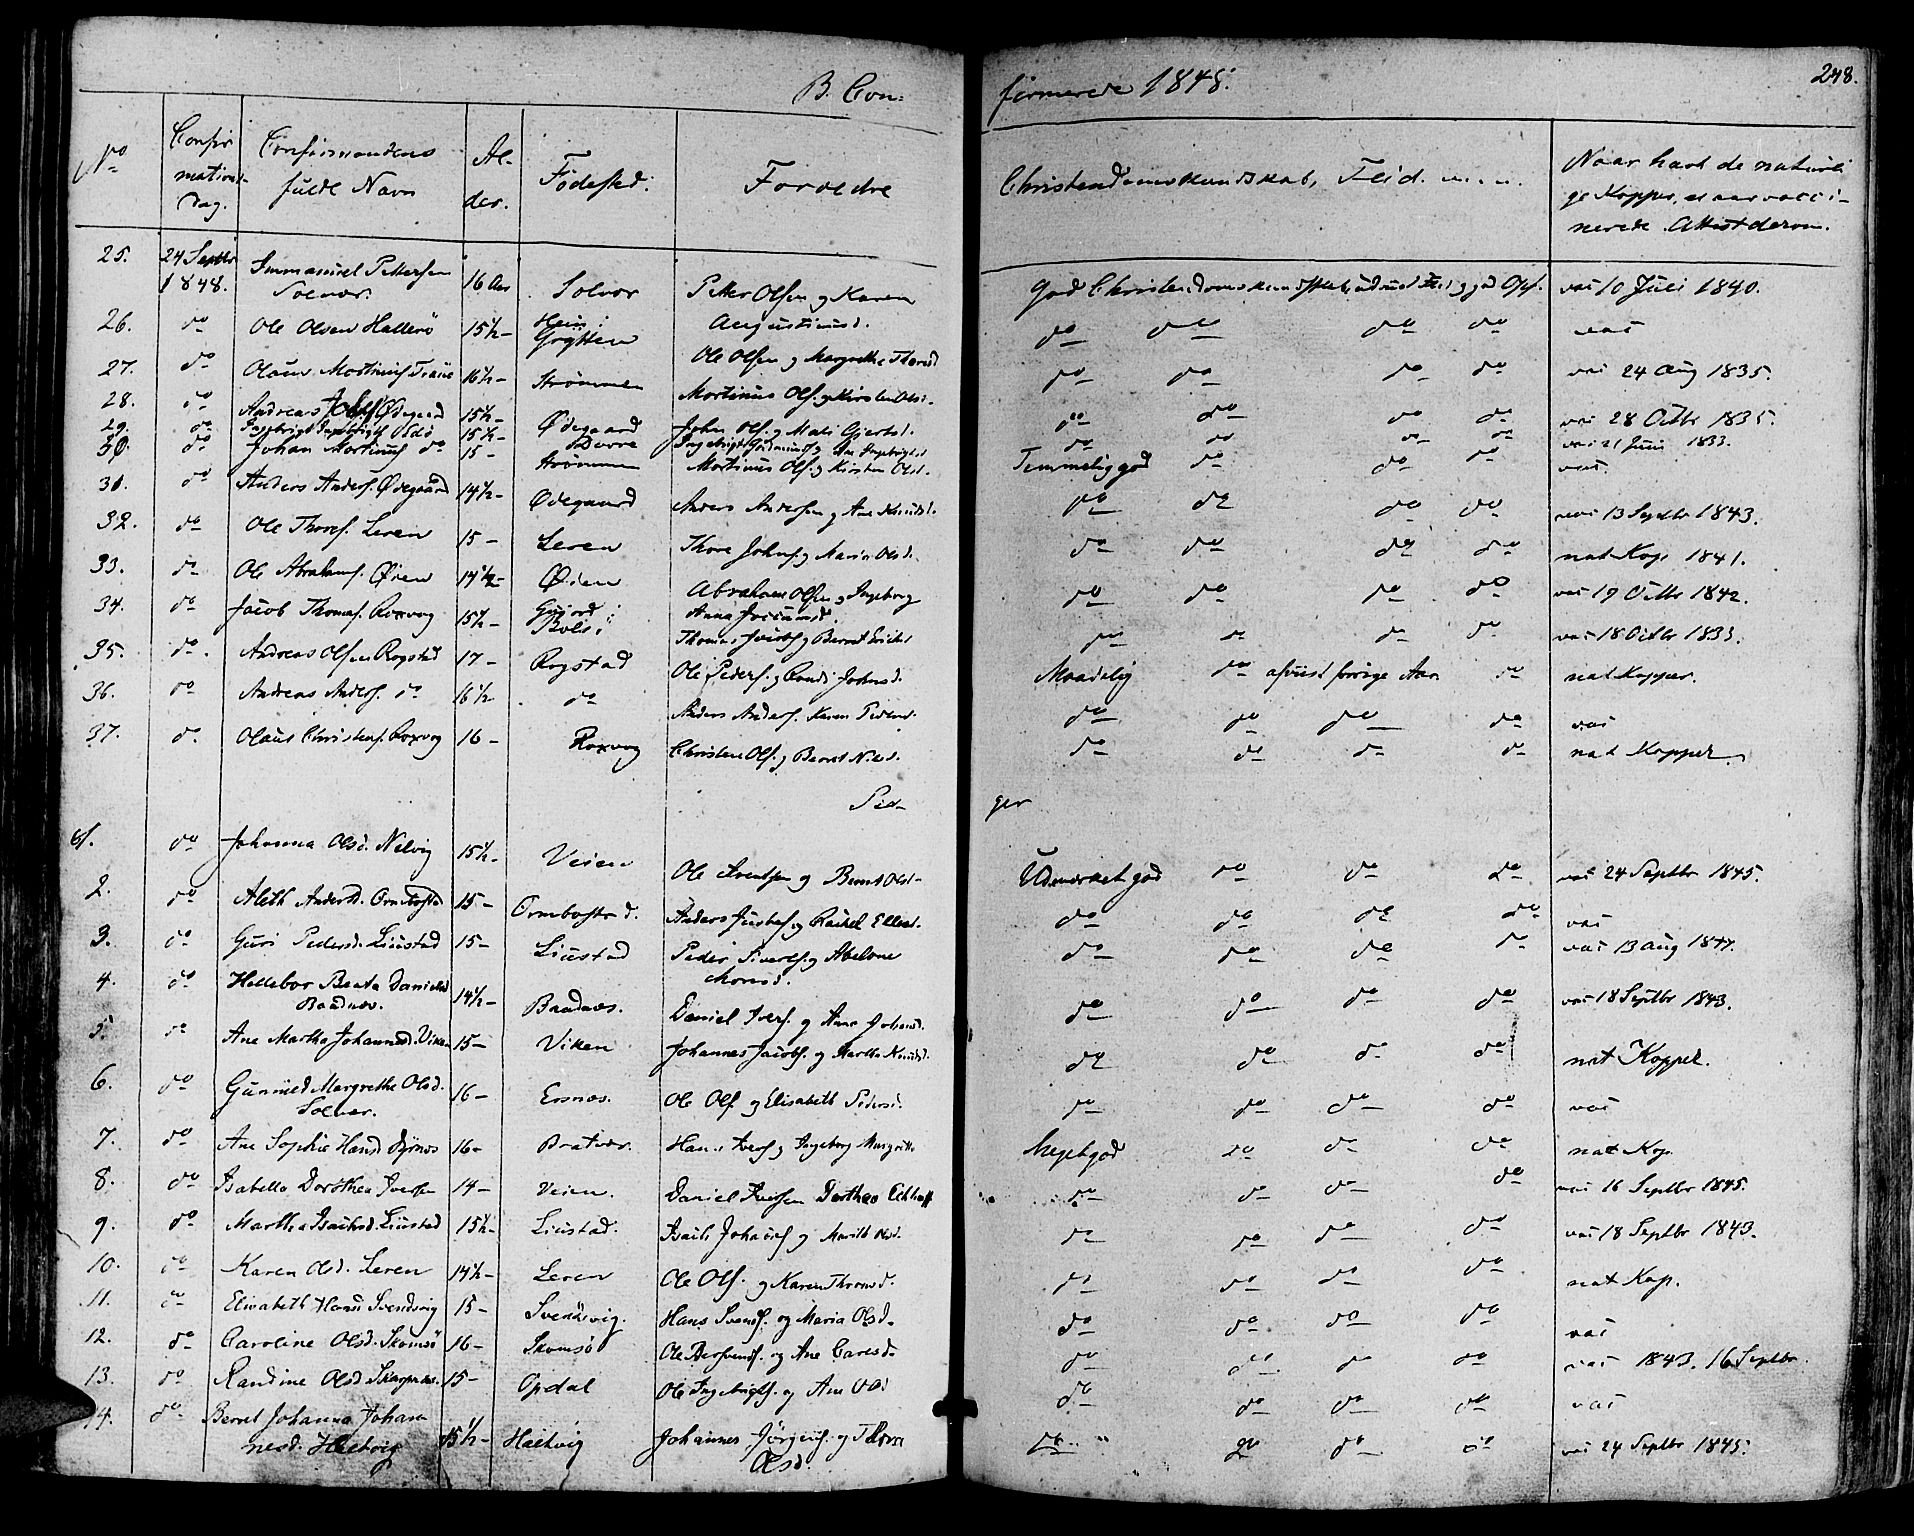 B. Con-
firmerede 1848.
248.
No
Confir
mations-
Dag.
Confirmandens
fulde Navn
Al-
der.
Fødested.
Forældre
Christendomskundskab, Flid. m. m.
Naar havt de naturli
ge Kopper, el. naar vacci-
nerede. Attest derom.
25. 24 Septbr 1848. Immanuel Pettersen Solvær. 16 Aar Solvær Petter Olsen og Karen Augustinusd. God Christendomskundskab, udmt Flid og god Opf. vac 10 Juli 1840.
26. do Ole Olsen Hallerö 15½ - Heim i Grytten Ole Olsen og Margrethe Thoresd do do do do vac
27. do Olaus Martinus 16½ - Strømmen Martinus Ols. og Kirsten Olsd. do do do do vac 24 Aug 1835.
28. do Andreas Johns. Ødegaard 15½ - Ødegaard John Ols. og Mali Gjertsd. do do do do vac 28 Octbr 1835.
29. do Ingebrigt Ingebrigts. 15½ - Dovre Ingebrigt og Ane Ingebrigtsd do do do do vac 21 Juni 1833.
30. do Johan Martinus do 15 - Strømmen Martinus Ols. og Kirsten Olsd. Temmelig god do do do vac.
31. do Anders Anders. Ødegaard 14½ - Ødegaard Anders Andersen og Ane Knudsd. do do do do vac 13 Septbr 1843.
32. do Ole Thores. Leren 15 - Leren Thore Johns. og Maria Olsd. do do do do nat Kop. 1841.
33. do Ole Abrahams. Øien 14½ - Øien Abraham Olsen og Ingeborg Anna do do do do vac 19 Octbr 1842.
34. do Jacob Thomas. Roxvog 15½ - Bolsø Thomas Jacobs. og Berret Ericksd do do do do vac 18 Octbr 1833.
35. do. Andreas Olsen Rogstad 17 - Rogstad Ole Peders. og Johnsd. Maadelig do afviist forrige Aar do nat Kopper.
36. do Andreas Anders. do 16½ - do Anders Anders. Karen Pedersd. do do do do vac
37. do Olaus Christens. Roxvog 16 - Roxvog Christen Ols. og Berret Nilsd. do do do do nat Kopper
Pi-
ger
1. do Johanna Olsd. Nelvig 15½ - Veien Ole Iversen og Berret Olsd - Udmærket god do do do vac 24 Septbr 1845.
2. do Aleth Andersd. Ormbostad 15 - Ormbostad. Anders Justus. og Rachel Ellensd. do do do do vac
3. do Guri Pedersd. Liustad 15 - Liustad Peder Siverts. og Abelone Monsd. do do do do vac 13 Aug 1847.
4. do Hellebor Beata Danielsd Baadnæs. 14½ - Baadnæs. Daniel Ivers. og Ane Johansd. do do do do vac 18 Septbr 1843.
5. do Ane Martha Johannesd. Viken 15 - Viken Johannes Jacobs. og Martha Knudsd. do do do do nat Kopper.
6. do Gunnild Margrethe Olsd. Solvær. 16 - Ersnæs. Ole Ols. og Elisabeth Pedersd. do do do do vac
7. do Ane Sophie Hansd Dyrnæs 16 - Bratvær. Hans Ivers. og Ingeborg Margrethe Meget god do do do nat Kop.
8. do Isabella Dorothea Iversen 14 - Veien. Daniel Iversen Dorthea Eckhoff do do do do vac 16 Septbr 1845.
9. do Martha Isachsd. Liustad 15½ - Liustad. Isach Johans. og Marith Olsd. do do do do vac 18 Septbr 1843.
10. do Karen Olsd. Leren 14½ - Leren Ole Ols. og Karen Thoresd. do do do do nat Kop.
11. do Elisabeth Hansd Svendsvig 15 - Svendsvig. Hans Svends. og Maria Olsd. do do do do vac
12. do Caroline Olsd. Skomsö 16 - Skomsö Ole Bersvends. og Ane Larsd. do do do do vac 1843. 16 Septbr.
13. do Randine Olsd 15 - Opdal Ole Ingebrigts. og Ane Olsd do do do do vac
14. do Berret Johanna Johannesd. Haltvig 15½ - Haltvig Johannes Jörgens. og Olsd. do do do do vac 24 Septbr 1845.